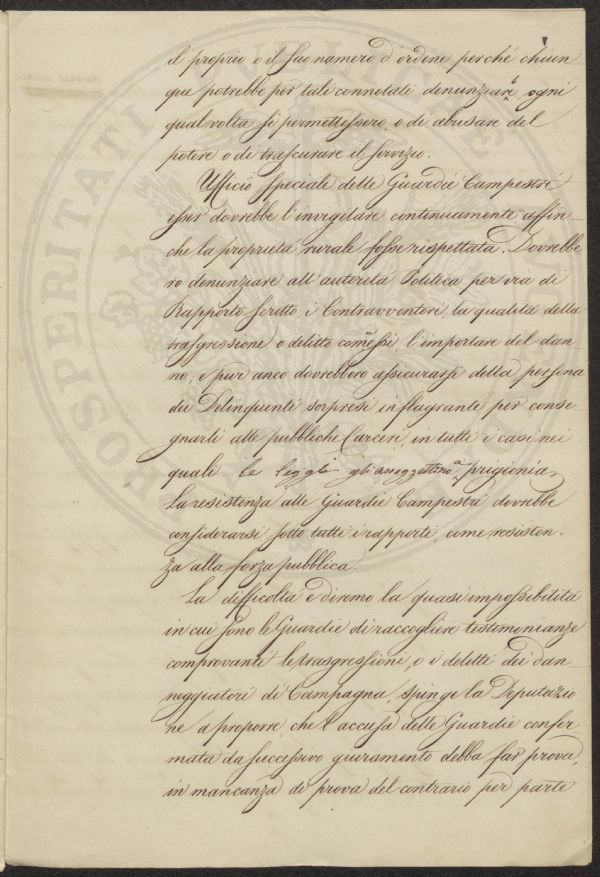 il proprio o il suo numero d'ordine perchè chiun
que potrebbe per tali connotati denunziare ogni
qual volta si permettessero, o di abusare del
potere o di trascurare il servizio.
Ufficio speciale delle Guardie Campestri
esser dovrebbe l'invigilare continuamente affin_
che la proprietà rurale fosse rispettata. Dovrebbe
ro denunziare all'autorità Politica per via di
Rapporto scritto, i Contravventori, la qualità della
trasgressione, o delitto com̃essi, l'importare del dan_
no, e pur anco dovrebbero assicurarsi della persona
dei Delinquenti sorpresi in flagrante per conse_
gnarli alle pubbliche Carceri, in tutti i casi nei
quali le leggi gli assoggettino a prigionia.
La resistenza alle Guardie Campestri dovrebbe
considerarsi sotto tutti i rapporti, come resisten_
za alla forza pubblica.
La difficoltà e diremo la quasi impossibilità
in cui sono le Guardie di raccogliere testimonianze
comprovanti le trasgressioni, o i delitti dei dan_
neggiatori di Campagna, spinge la Deputazio
ne a proporre, che l'accusa delle Guardie confer
mata da successivo giuramento debba far prova,
in mancanza di prova del contrario per parte
PROSPERITATI PUBLICAE